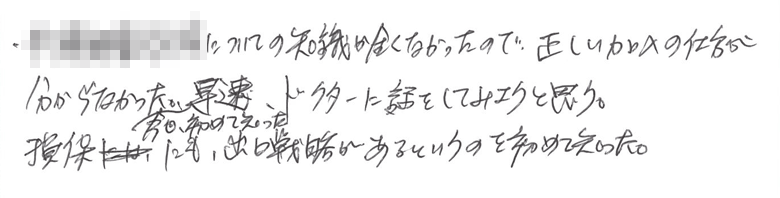 ・についての知識が全くなかったので、正しいカルテの仕方が
分からなかった。早速、ドクターに話をしてみようと思う。
今回、初めて知った
損保にも、出口戦略があるというのを初めて知った。